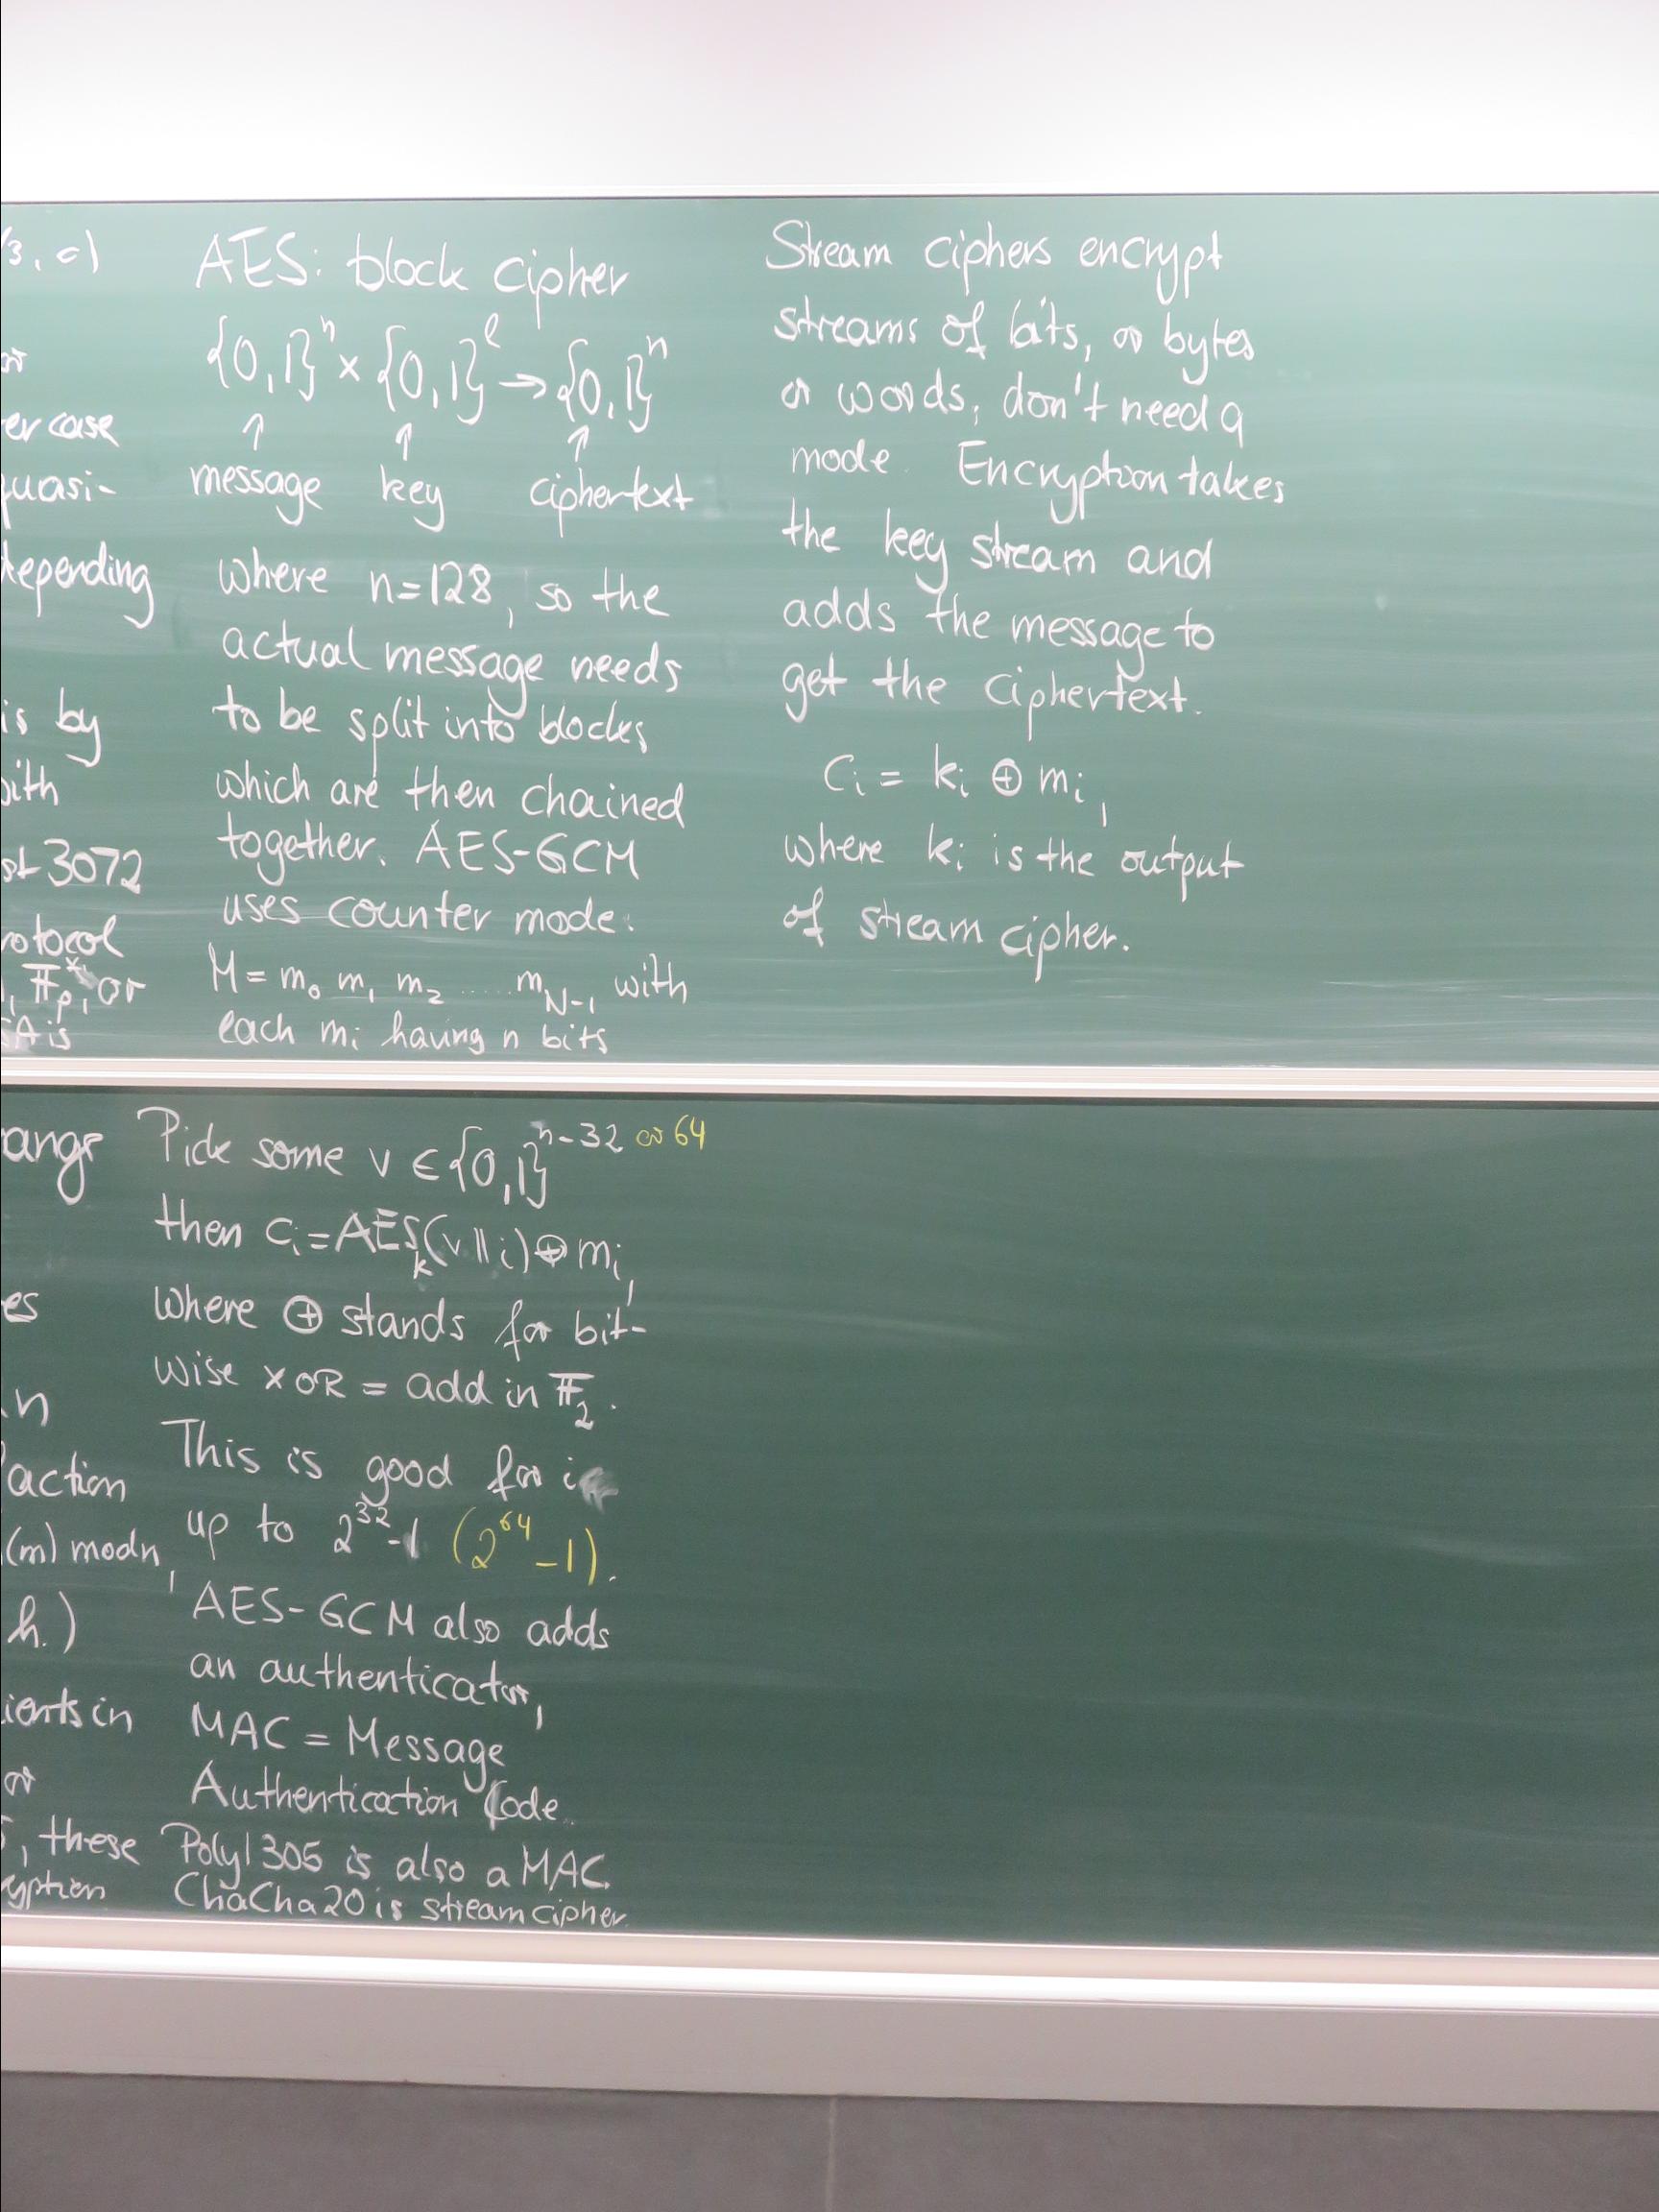 3, c)
er case
quasi-
depending
is by
with
st 3072
rotocol
, 𝔽*p, or
SA is
AES: block cipher
{0,1}ⁿ × {0,1}^ℓ → {0,1}ⁿ
↑ ↑ ↑
message key ciphertext
where n=128, so the
actual message needs
to be split into blocks
which are then chained
together. AES-GCM
uses counter mode.
M = m₀ m₁ m₂ ..... m_{N-1} with
each mᵢ having n bits
Stream ciphers encrypt
streams of bits, or bytes
or words, don't need a
mode. Encryption takes
the key stream and
adds the message to
get the ciphertext.
Cᵢ = kᵢ ⊕ mᵢ,
where kᵢ is the output
of stream cipher.
ange
es
n
action
(m) mod n,
h.)
ients in
or
, these
yption
Pick some v ∈ {0,1}^{n-32 or 64}
then Cᵢ = AES_k(v || i) ⊕ mᵢ,
where ⊕ stands for bit-
wise XOR = add in 𝔽₂.
This is good for i
up to 2³²-1 (2⁶⁴-1).
AES-GCM also adds
an authenticator,
MAC = Message
Authentication Code.
Poly1305 is also a MAC.
ChaCha20 is stream cipher.